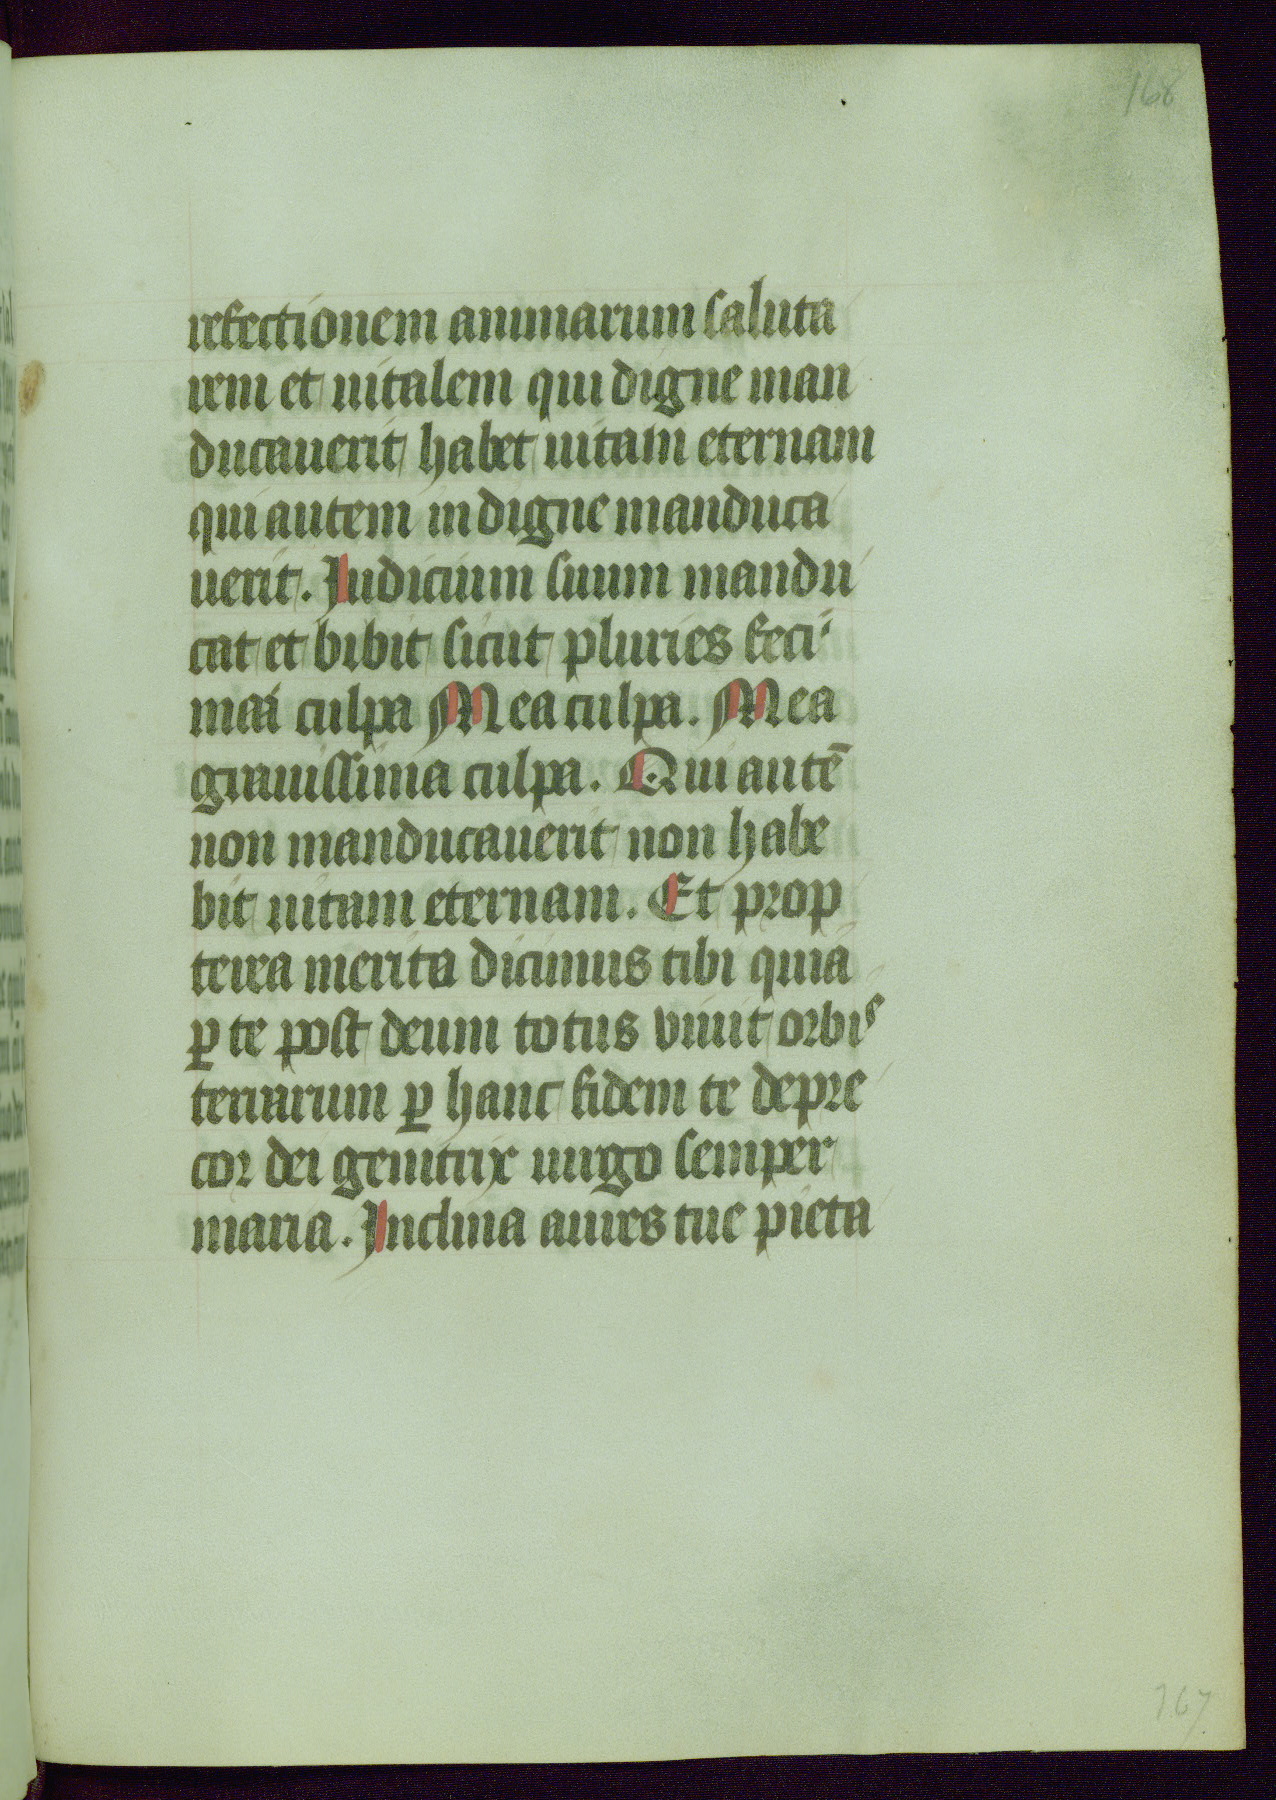 168
refectionem animarum saluta
rem et uitalem qui digne man
ducauerit habet uitam eternam
qui autem indigne manduca
uerit. Iudicium suum mandu
cat et bibit sicut pluries feci
mea culpa Mea culpa. Mea
grauissima culpa. Qui autē
non manducauerit non habe
bit uitam eternam. Et prop
terea merita dicimus tibi quia
ꝑ te post deum totus viuit orbis
terrarum ꝑ hanc fidem te depre
cor dei genitrix uirgo semper
maria. Inclina aures tue pieta
167